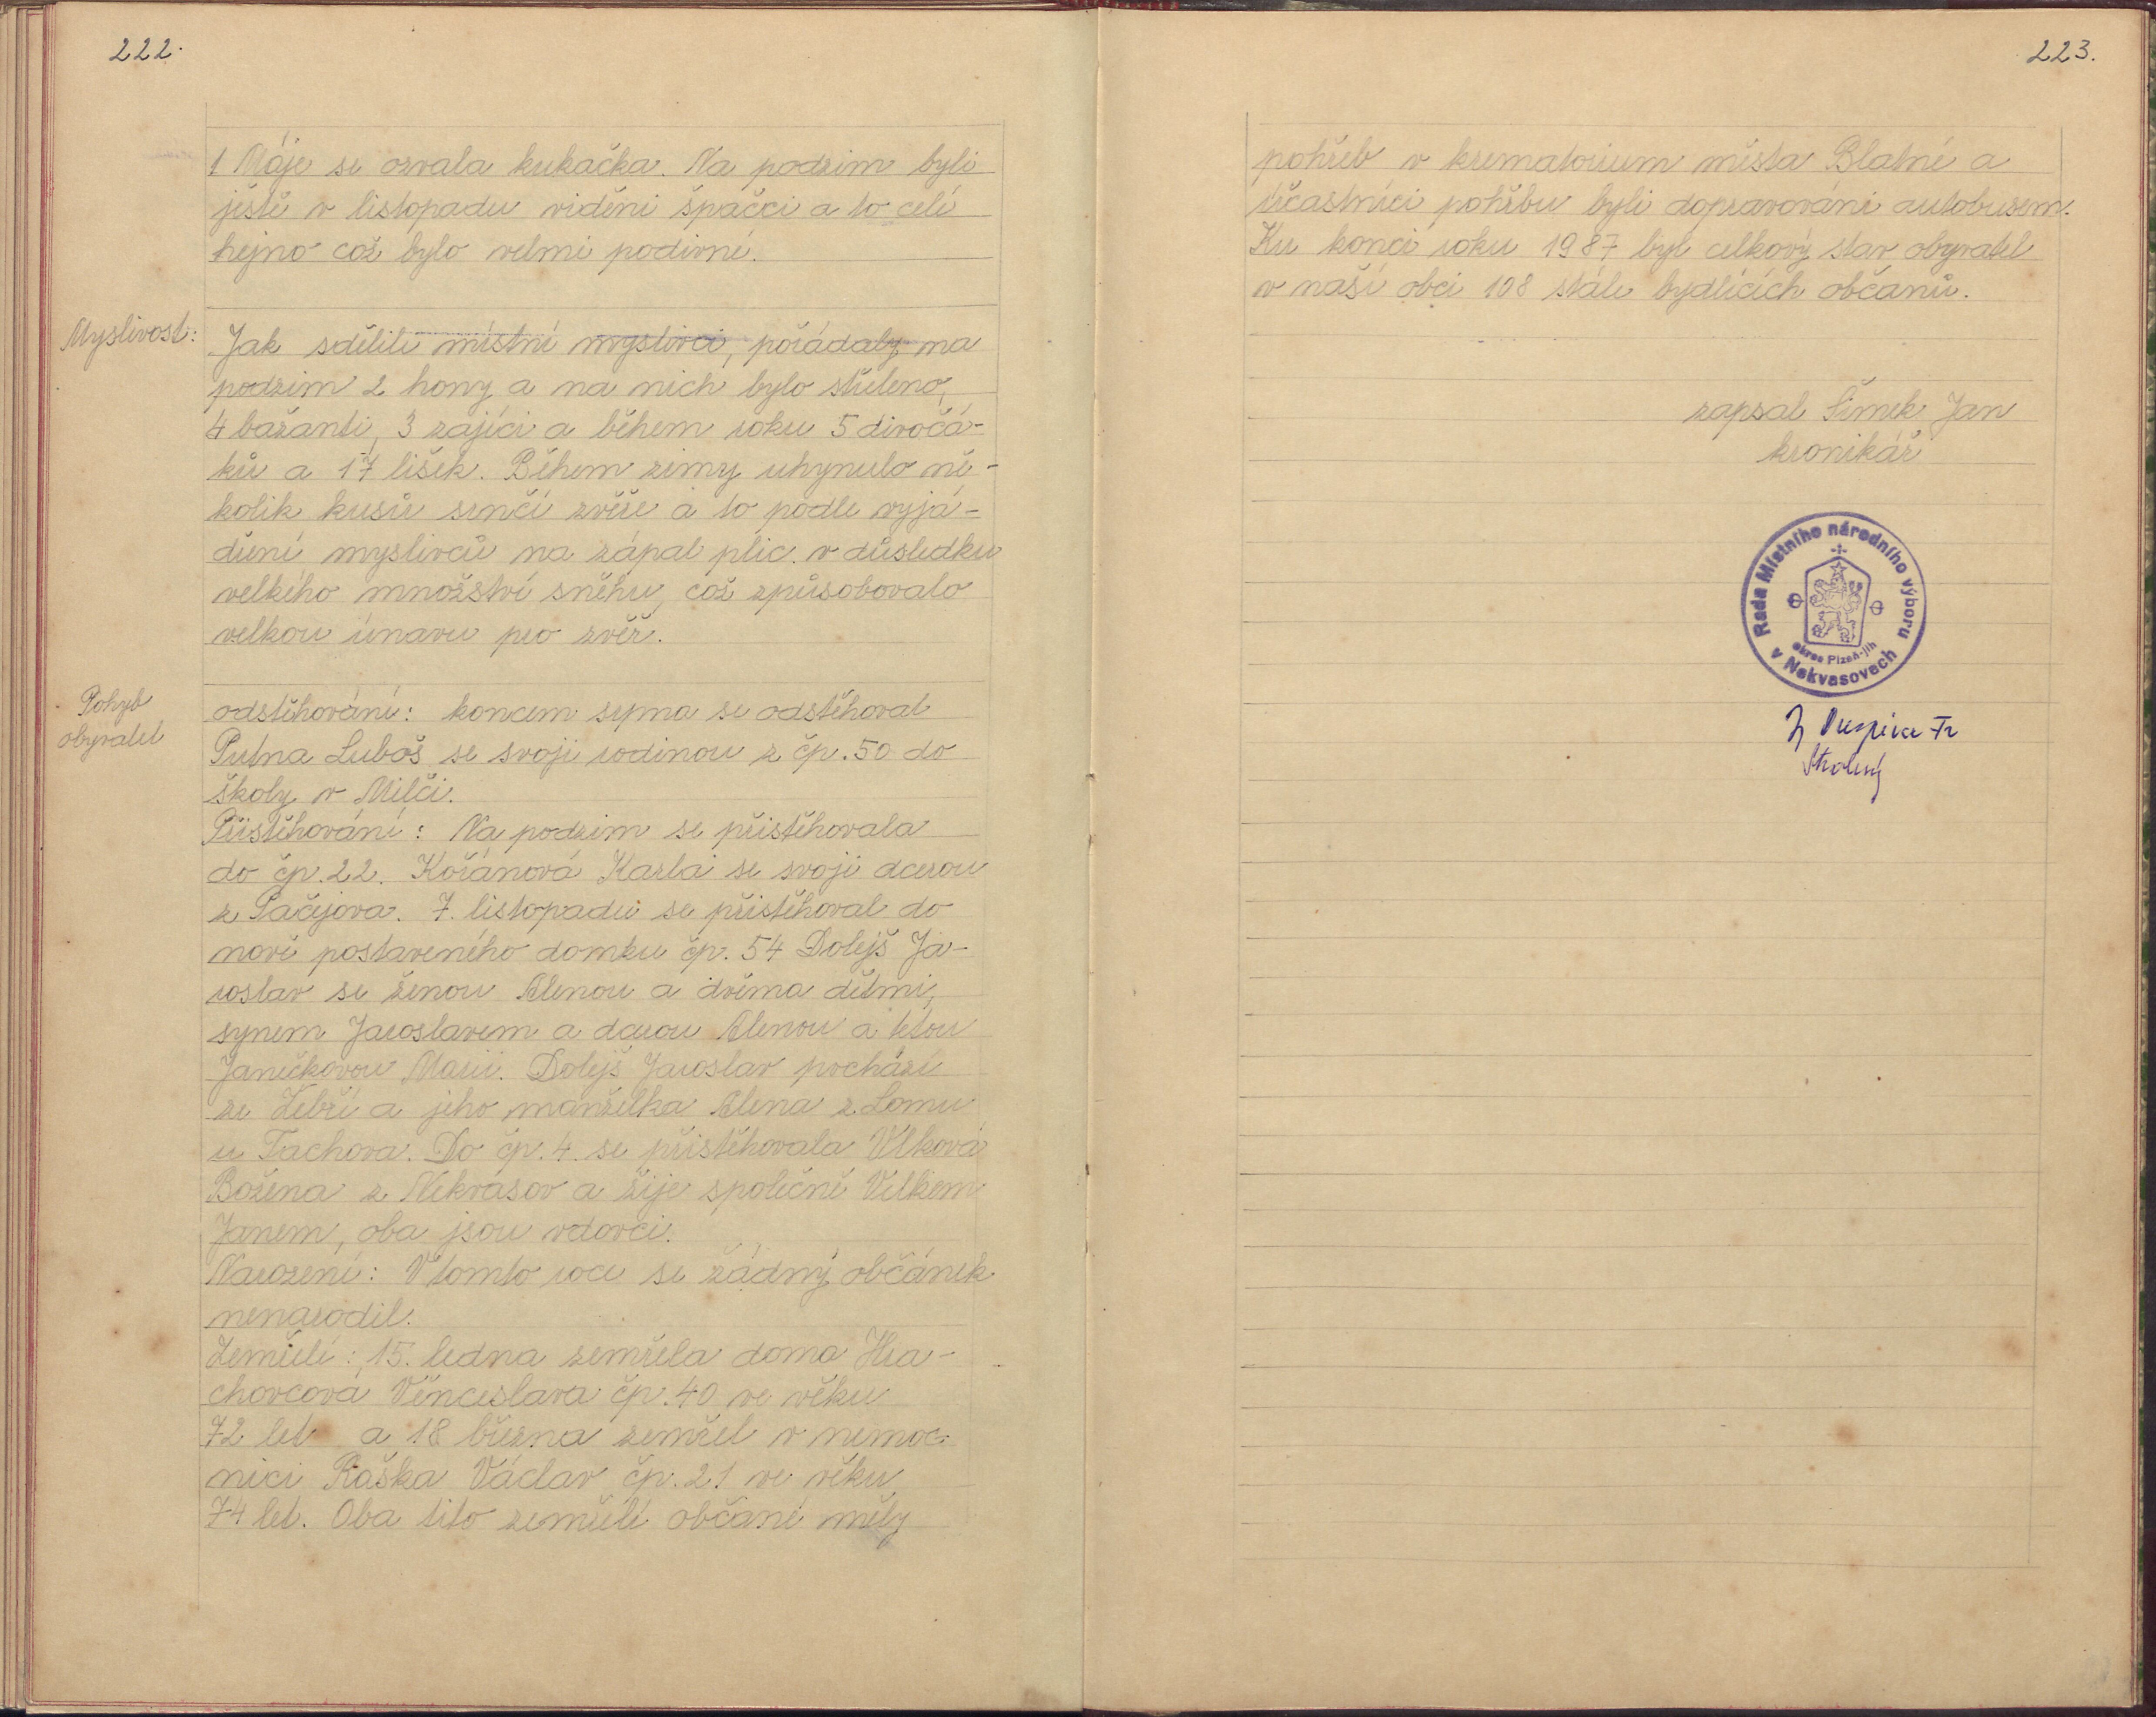 222.
1 Máje se ozvala kukačka. Na podzim byli
ještě v listopadu viděni špačci a to celé
hejno což bylo velmi podivné.
Myslivost:
Jak sdělili místní myslivci, pořádaly na
podzim 2 hony a na nich bylo střeleno,
4 bažanti, 3 zajíci a během roku 5 divočá-
ků a 17 lišek. Během zimy uhynulo ně-
kolik kusů srnčí zvěře a to podle vyjá-
dření myslivců na zápal plic. v důsledku
velkého množství sněhu, což způsobovalo
velkou únavu pro zvěř.
Pohyb
obyvatel
odstěhování: koncem srpna se odstěhoval
Putna Luboš se svoji rodinou z čp. 50 do
školy v Milči.
Přistěhování: Na podzim se přistěhovala
do čp. 22. Kořánová Karla se svoji dcerou
z Pačejova. 7. listopadu se přistěhoval do
nově postaveného domku čp. 54 Dolejš Ja-
roslav se ženou Alenou a dvěma dětmi,
synem Jaroslavem a dcerou Alenou a tetou
Janečkovou Marii. Dolejš Jaroslav pochází
ze Želvi a jeho manželka Alena z Lomu
u Tachova. Do čp. 4. se přistěhovala Vlková
Božena z Nekrasov a žije společně Velkem
Janem, oba jsou vdovci.
Narození: V tomto roce se žádný občánek
nenarodil.
Zemřelí: 15. ledna zemřela doma Hra-
chovcová Věnceslava čp. 40 ve věku
72 let a 18 března zemřel v nemoc-
nici Raška Václav čp. 21 ve věku
74 let. Oba tito zemřelí občané měly
223.
pohřeb v krematorium města Blatné a
účastníci pohřbu byli dopravováni autobusem.
Ku konci roku 1987 byl celkový stav obyvatel
v naší obci 108 stále bydlících občanů.
zapsal Šimek Jan
kronikář
Rada Místního národního výboru
v Nekvasovech
okres Plzeň-jih